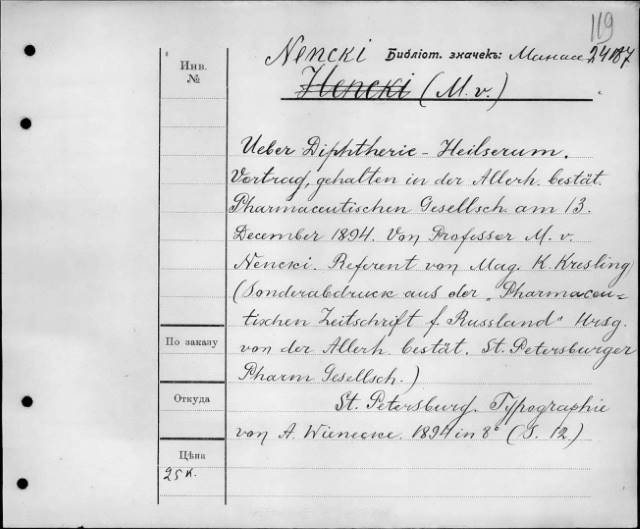 119
Nencki Библіот. значекъ: Манасс 24187
Инв.
№
Hencki (M. v.)
Ueber Diphtherie - Heilserum.
Vortrag, gehalten in der Allerh. bestät.
Pharmaceutischen Gesellsch am 13.
December 1894. Von Professor M. v.
Nencki. Referent von Mag. K. Kresling
(Sonderabdruck aus der „Pharmaceu=
tischen Zeitschrift f. Russland" Hrsg.
По заказу
von der Allerh. bestät. St. Petersburger
Pharm Gesellsch.)
Откуда
St. Petersburg. Typographie
von A. Wienecke. 1894 in 8° (S. 12.)
Цѣна
25 к.